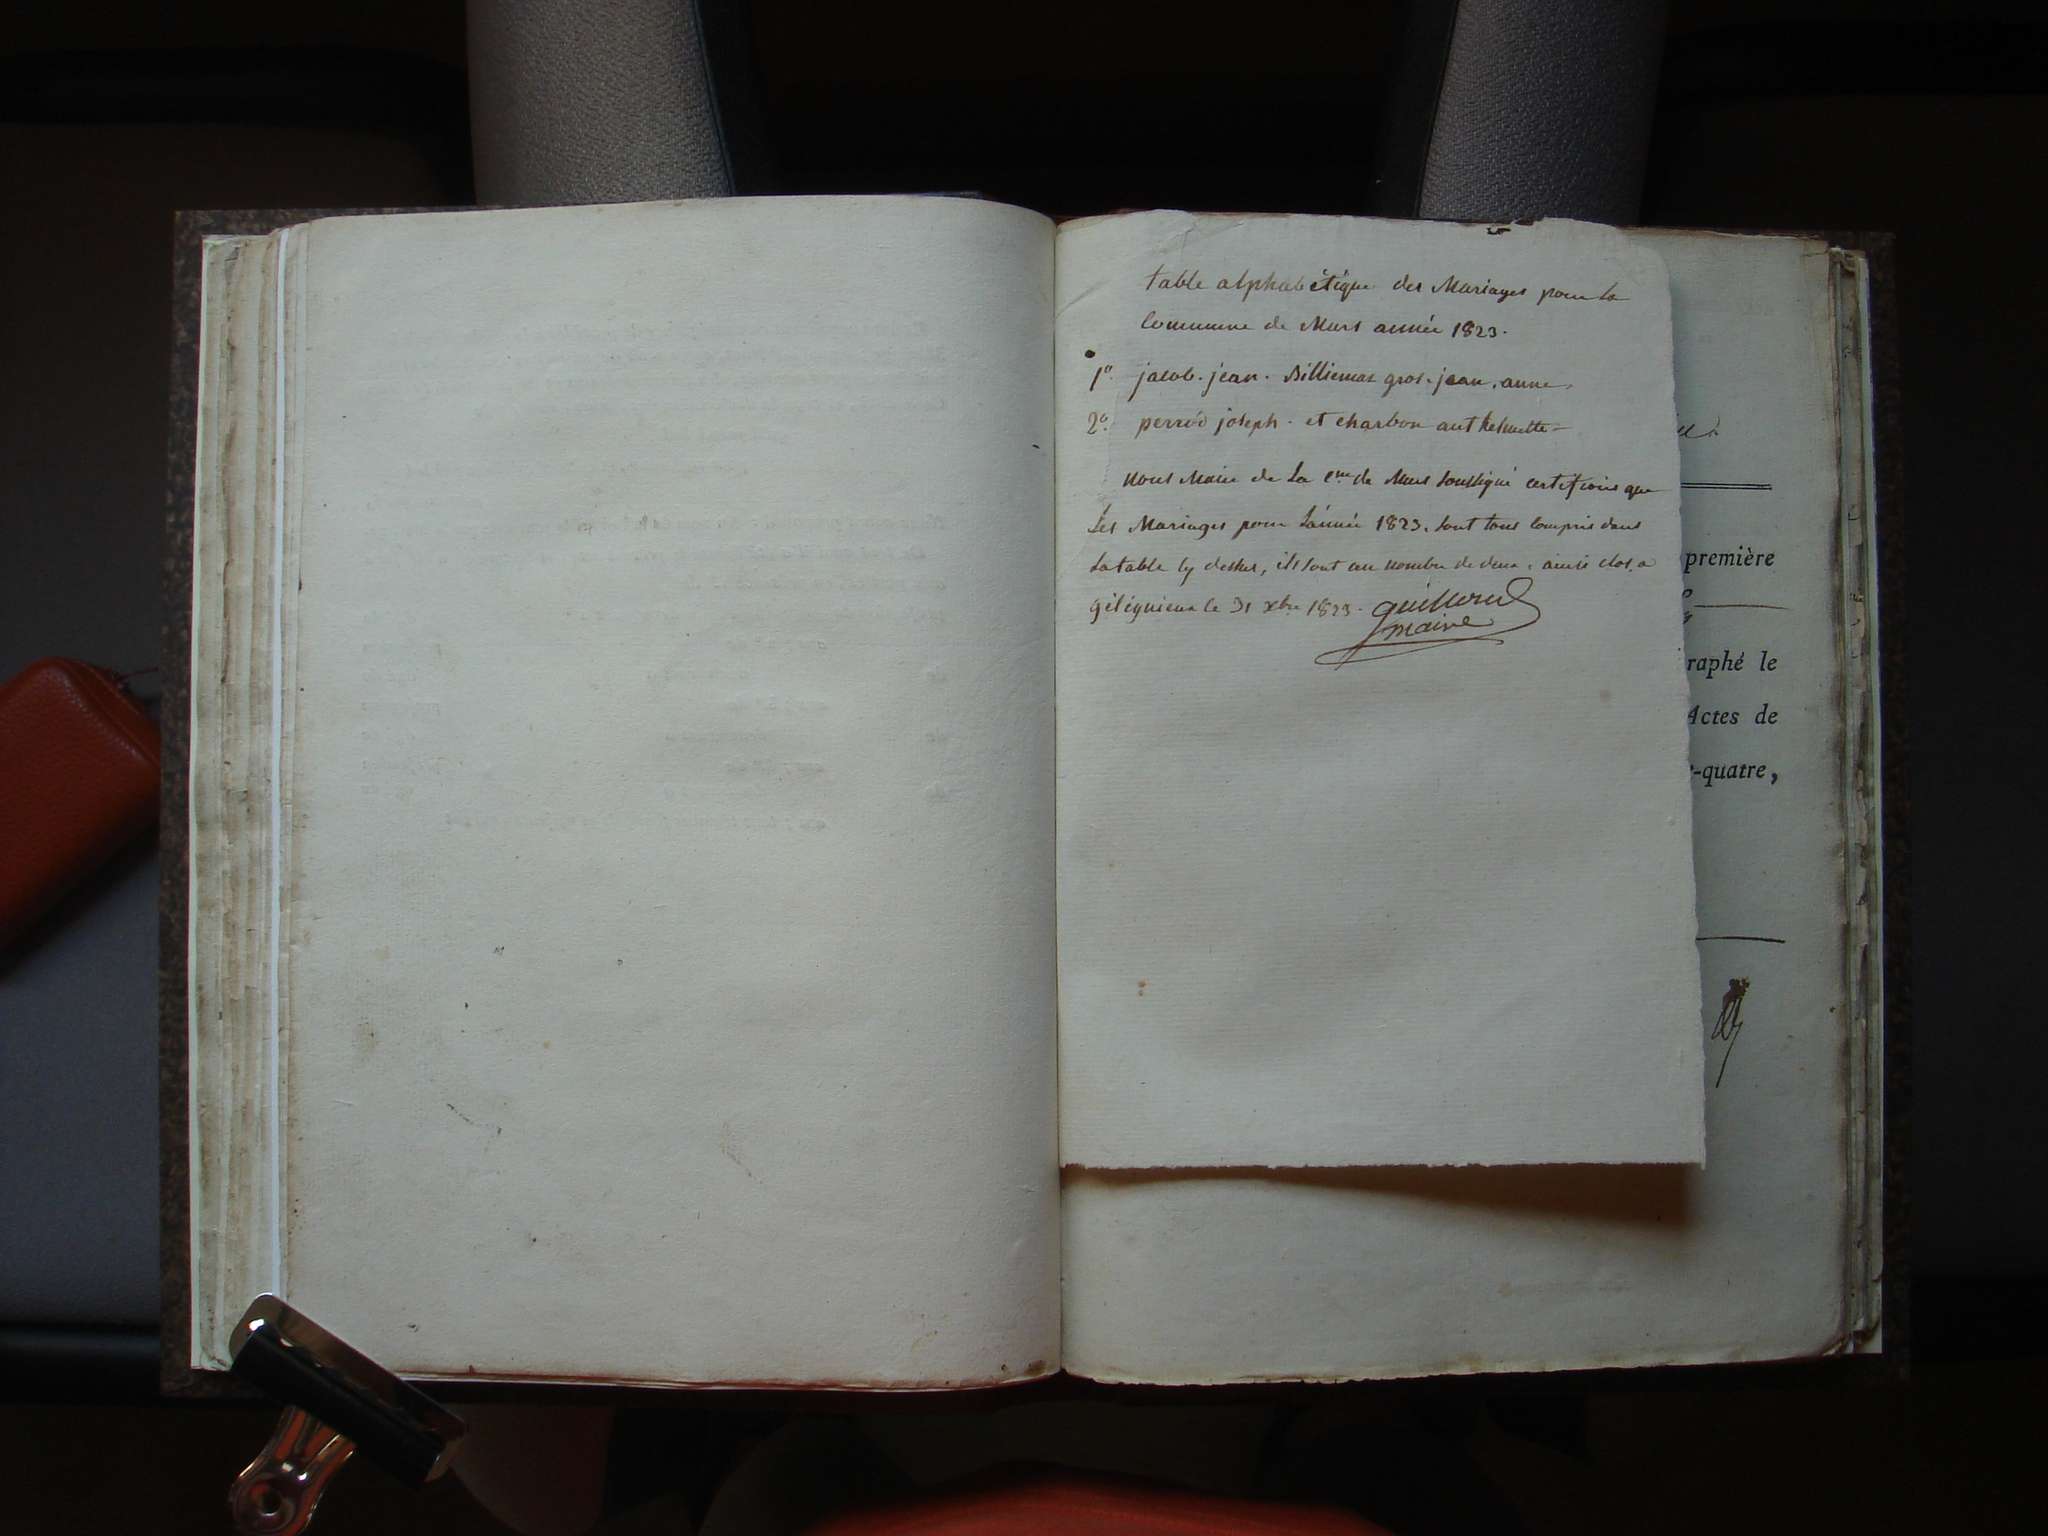 table alphabétique des Mariages pour la
Commune de Murs année 1823.
1º. jacob. jean. Billiemaz gros. jean. anne.
2º. perrod joseph. et charbon anthelmette
nous Maire de La cne de Murs soussigné certifions que
Les Mariages pour L'année 1823. sont tous compris dans
La table cy dessus, ils sont au nombre de deux. ainsi clos. a
gélignieux le 31 xbre 1823. guilloud
maire
première
raphé le
Actes de
-quatre,